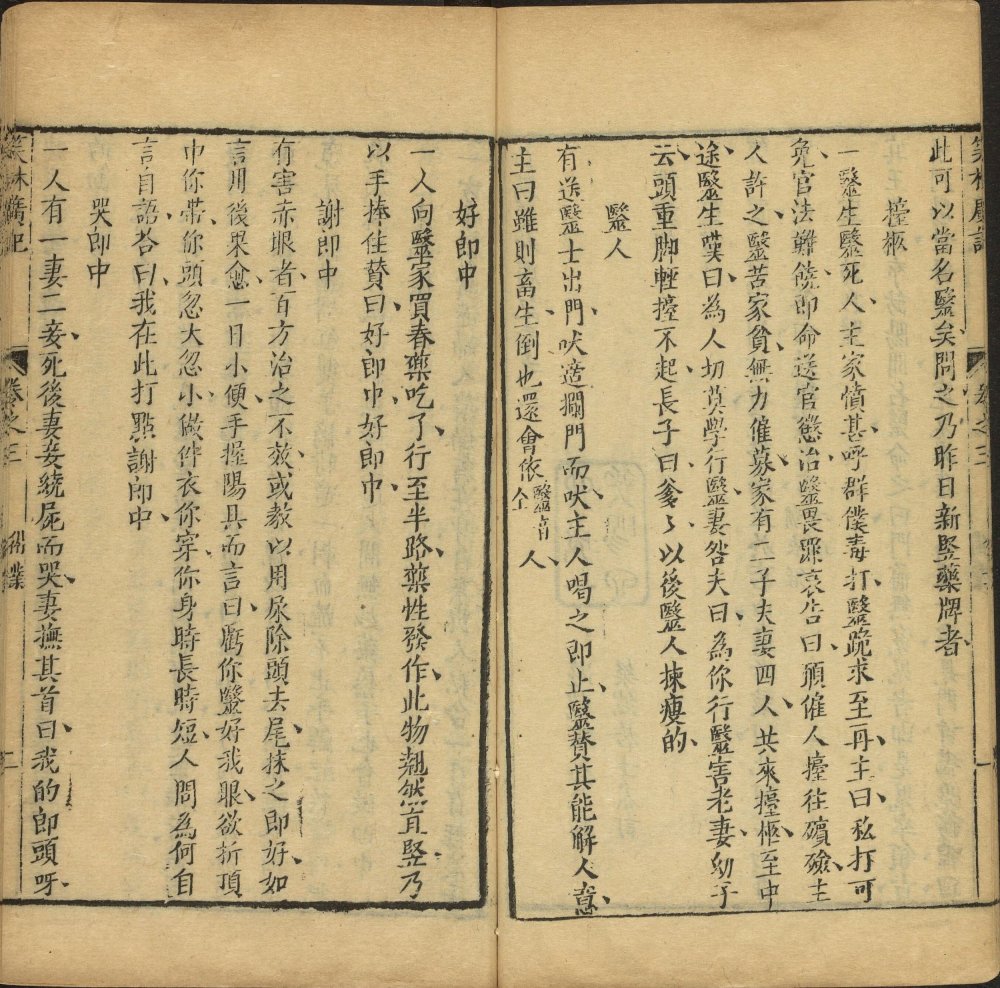 笑林廣記
此可以當名醫矣問之乃昨日新竪藥牌者
擡柩
一醫生醫死人主家憤甚呼群僕毒打醫跪求至再主曰私打可
免官法難饒即命送官懲治醫畏罪哀告曰願催人擡往殯殮主
人許之醫苦家貧無力催募家有二子夫妻四人共來擡柩至中
途醫生嘆曰為人切莫學行醫妻咎夫曰為你行醫害老妻幼子
云頭重脚輕擡不起長子曰爹〻以後醫人揀瘦的
醫人
有送醫士出門吠適攔門而吠主人喝之即止醫賛其能解人意
主曰雖則畜生倒也還會依醫音仝人
好郎中
一人向醫家買春藥吃了行至半路藥性發作此物翹然直竪乃
以手捧住賛曰好郎中好郎中
謝郎中
有害赤眼者百方治之不效或教以用尿除頭去尾抹之即好如
言用後果愈一日小便手握陽具而言曰虧你醫好我眼欲折頂
巾你帶你頭忽大忽小做件衣你穿你身時長時短人問為何自
言自語答曰我在此打點謝郎中
哭郎中
一人有一妻二妾死後妻妾繞屍而哭妻撫其首曰我的郎頭呀
笑林廣記 卷之三 術業 二